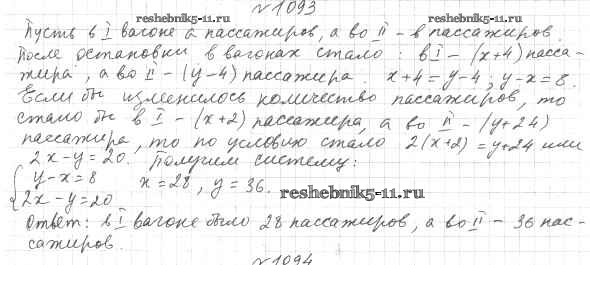 №1093
reshebnik5-11.ru
Пусть в I вагоне a пассажиров, а во II – в пассажиров.
После остановки в вагонах стало : в I – (x+4) пасса-
жира, а во II – (y-4) пассажира. x+4=y-4; y-x=8.
Если бы изменилось количество пассажиров, то
стало бы в I – (x+2) пассажира, а во II – (y+24)
пассажира, то по условию стало 2(x+2)=y+24 или
2x-y=20. Получим систему:
{ y-x=8 x=28, y=36.
2x-y=20 reshebnik5-11.ru
Ответ: в I вагоне было 28 пассажиров, а во II – 36 пас-
сажиров.
№1094